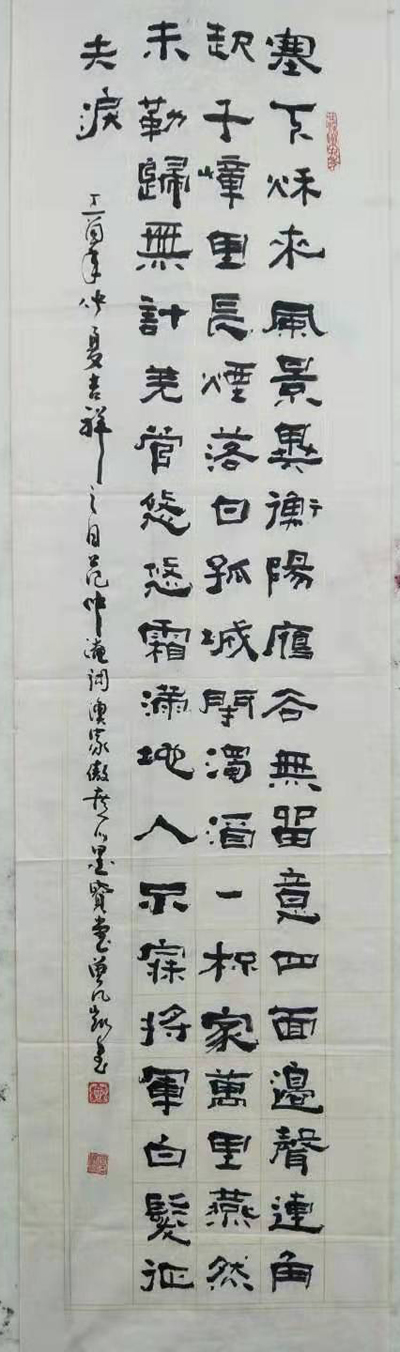 塞下秌來風景異衡陽雁去無留意四面邊聲連角
起千嶂里長煙落日孤城閉濁酒一杯家萬里燕然
未勒歸無計羌管悠悠霜滿地人不寐將軍白髮征
夫淚
丁酉年仲夏吉祥之日范仲淹詞漁家傲墨寶堂書